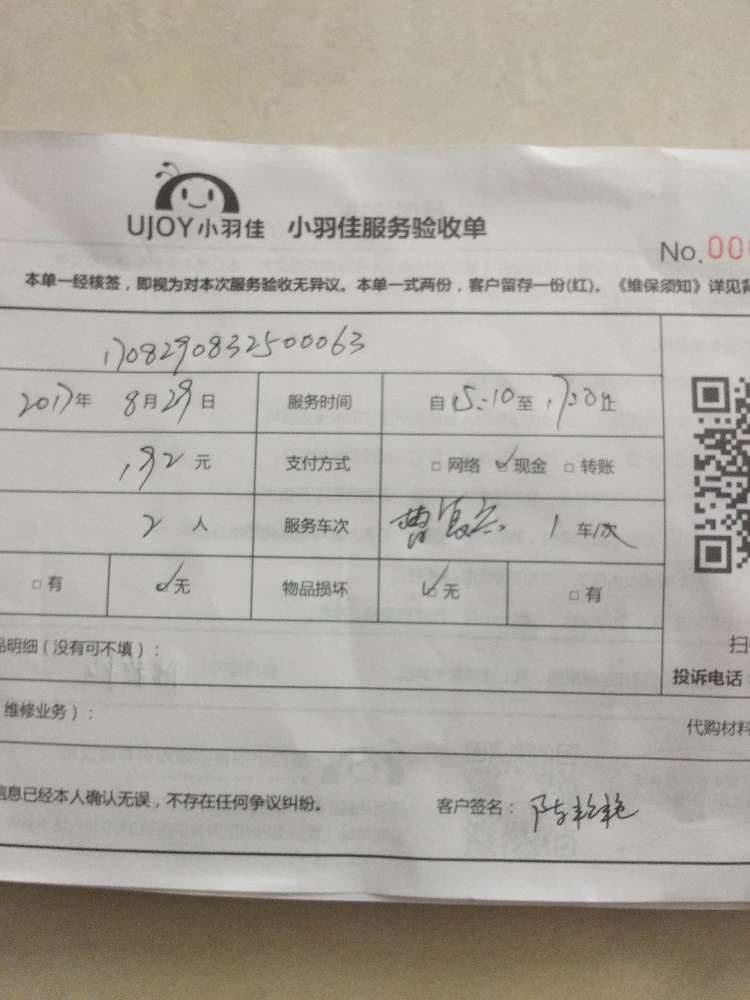 UJOY小羽佳 小羽佳服务验收单
No.000
本单一经核签，即视为对本次服务验收无异议。本单一式两份，客户留存一份(红)。《维保须知》详见背
1708290832500063
2017年 8月29日 服务时间 自15:10至17:20止
192元 支付方式 □网络 ☑现金 □转账
2人 服务车次 1车/次
□有 ☑无 物品损坏 ☑无 □有
品明细（没有可不填）：
扫
投诉电话：
维修业务）：
代购材料
信息已经本人确认无误，不存在任何争议纠纷。 客户签名：陈艳艳